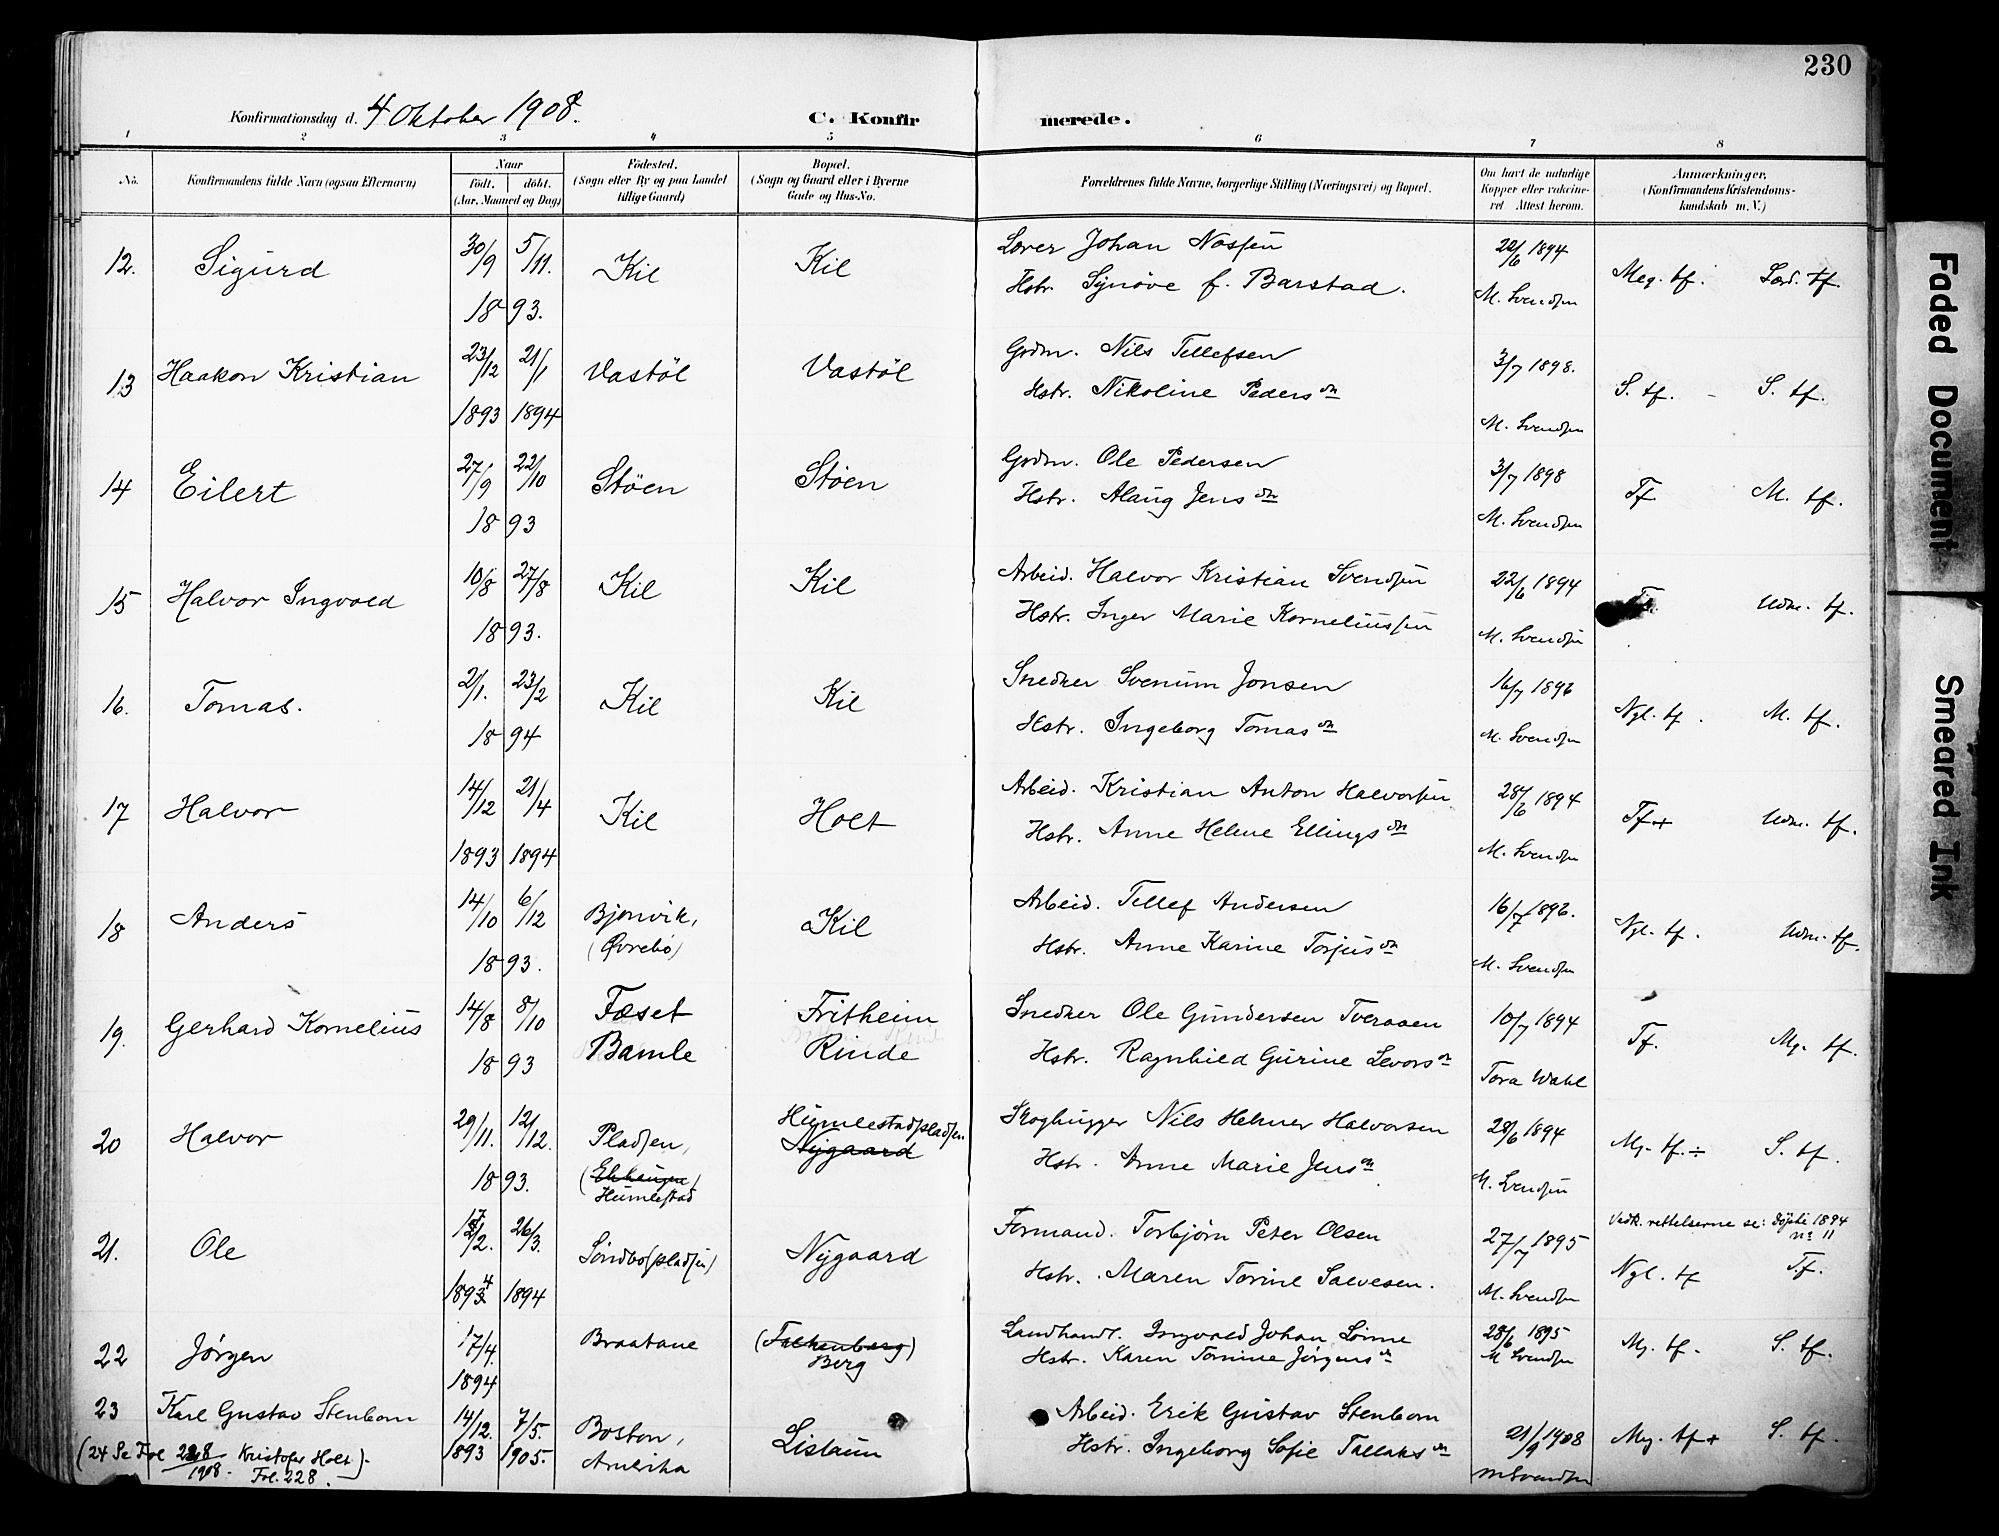 230
Konfirmationsdag d. 4 Oktober 1908.
C. Konfirmerede.
1 2 3 4 5 6 7 8
No. Konfirmandens fulde Navn (ogsaa Efternavn)
Naar
født. døbt.
(Aar, Maaned og Dag)
Fødested.
(Sogn eller By og paa Landet
tillige Gaard)
Bopæl.
(Sogn og Gaard eller i Byerne
Gade og Hus-No.
Forældrenes fulde Navne, borgerlige Stilling (Næringsvei) og Bopæl.
Om havt de naturlige
Kopper eller vaccine-
ret Attest herom.
Anmærkninger.
(Konfirmandens Kristendoms-
kundskab m. V.)
12. Sigurd 30/9 5/11. 1893. Kil Kil
Lærer Johan Nossen
Hstr. Synøve f. Barstad.
22/6 1894
M. Svendsen
Meg. tf. Særd. tf.
13 Haakon Kristian 23/12 1893 21/1 1894 Vastøl Vastøl
Grdm. Nils Tellefsen
Hstr. Nikoline Pedersdtr
3/7 1898.
M. Svendsen
S. tf. - S. tf.
14 Eilert 27/9 22/10 1893 Støen Støen
Grdm. Ole Pedersen
Hstr. Alaug Jensdtr
3/7 1898
M. Svendsen
Tf M. tf.
15 Halvor Ingvald 10/8 27/8 1893. Kil Kil
Arbeid. Halvor Kristian Svendsen
Hstr. Inger Marie Korneliussen
22/6 1894
M. Svendsen
Tf. Udm. tf.
16. Tomas. 2/1. 23/2 1894 Kil Kil
Snedker Svenum Jonsen
Hstr. Ingeborg Tomasdtr
16/7 1896
M. Svendsen
Ngl. tf. M. tf.
17 Halvor 14/12 1893 21/4 1894 Kil Holt
Arbeid. Kristian Anton Halvorsen
Hstr. Anne Helene Ellingsdtr
28/6 1894
M. Svendsen
Tf+ Udm. tf.
18 Anders 14/10 6/12 1893. Bjorvik, (Øvrebø) Kil
Arbeid. Tellef Andersen
Hstr. Anne Karine Torjusdtr
16/7 1896.
M. Svendsen
Ngl. tf. Udm. tf.
19. Gerhard Kornelius 14/8 8/10 1893 Fæset Bamle Fritheim Rinde
Snedker Ole Gundersen Tveraaen
Hstr. Ragnhild Gurine Levorsdtr
10/7 1894
Tora Wahl
Tf. Mg. tf.
20 Halvor 29/11. 12/12. 1893. Pladsen, Humlestad
Humlestadpladsen. Nygaard
Skoghugger Nils Helmer Halvorsen
Hstr. Anne Marie Jensdtr
28/6 1894
M. Svendsen
Mg. tf. ÷ S. tf.
21. Ole 17/2. 1894 26/3. 1894 Søndbø(pladsen) Nygaard
Formand. Torbjørn Peter Olsen
Hstr. Maren Torine Salvesen.
27/7 1895
M. Svendsen
Vedk. rettelserne se: døpte 1894
no 11
Ngl. tf Tf.
22 Jørgen 17/4. 1894 Braatane (Falkenberg) Berg
Landhandl. Ingvald Johan Lønne
Hstr. Karen Tomine Jørgensdtr
28/6 1895
M Svendsen
Mg. tf. S. tf.
23 Karl Gustav Stenbom 14/12. 1893 7/5. 1905. Boston, Amerika Lislaun
Arbeid. Erik Gustav Stenbom
Hstr. Ingeborg Sofie Tallaksdtr
21/9 1908
M Svendsen
Mg. tf+ S. tf.
(24 Se Fol 228/1908. Kristofer Holt).
Fol. 228.
Faded Document
Smeared Ink